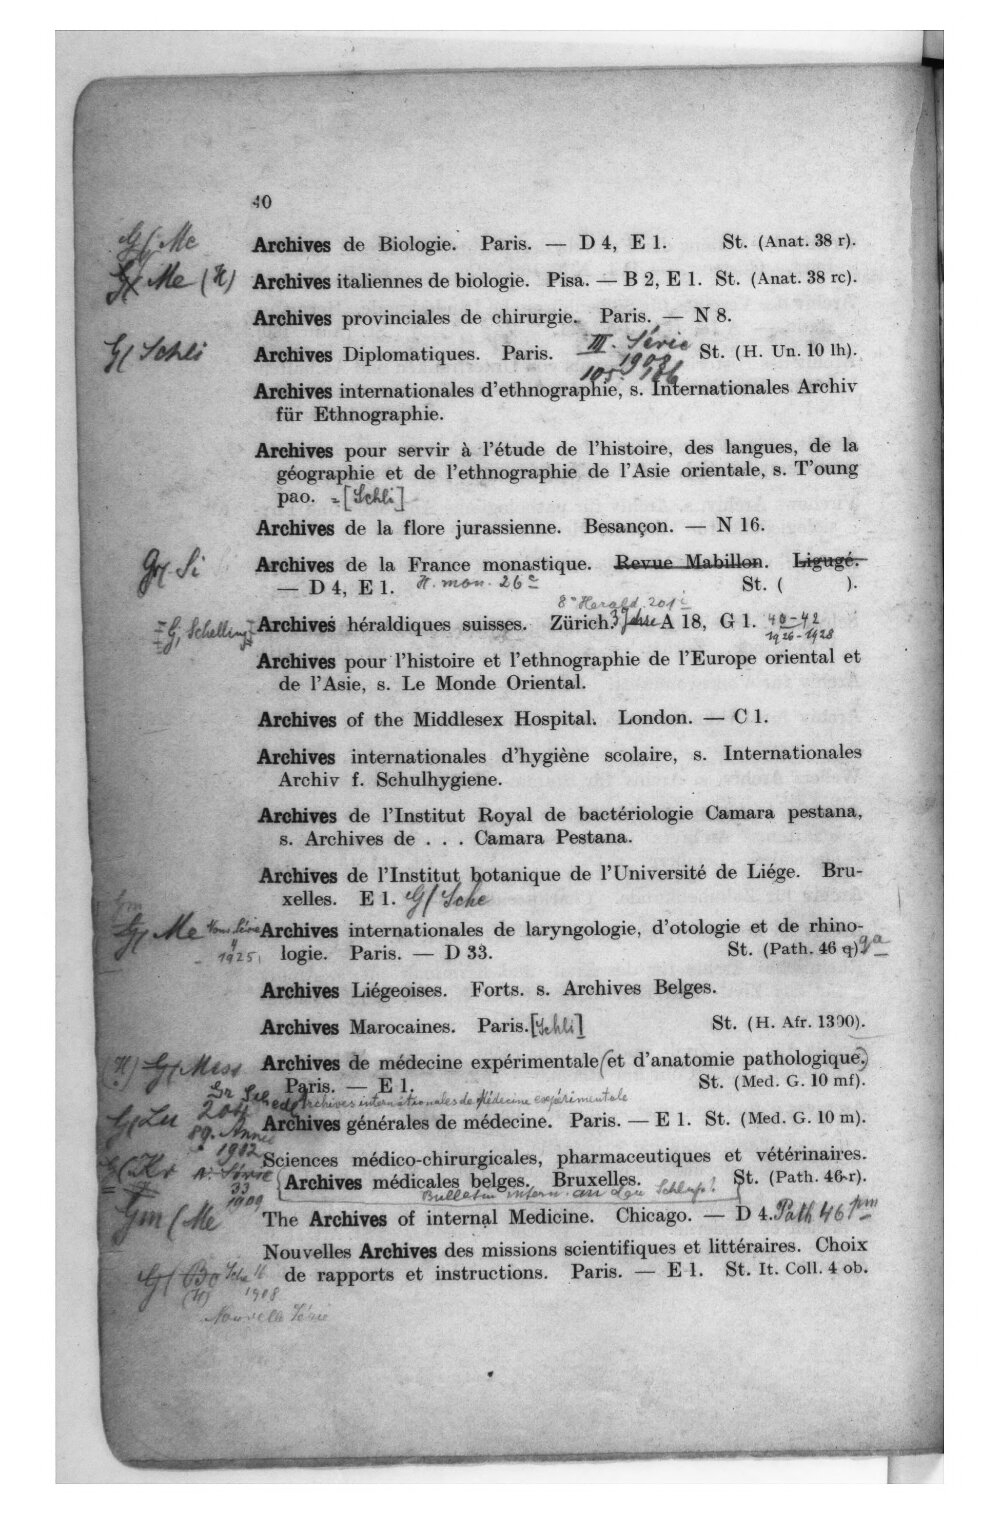 40
G/ Me Archives de Biologie. Paris. — D 4, E 1. St. (Anat. 38 r).
Me (H) Archives italiennes de biologie. Pisa. — B 2, E 1. St. (Anat. 38 rc).
Archives provinciales de chirurgie. Paris. — N 8.
G/ Schli Archives Diplomatiques. Paris. III. Série St. (H. Un. 10 lh).
105. 106
Archives internationales d'ethnographie, s. Internationales Archiv
für Ethnographie.
Archives pour servir à l'étude de l'histoire, des langues, de la
géographie et de l'ethnographie de l'Asie orientale, s. T'oung
pao. = [Schli]
Archives de la flore jurassienne. Besançon. — N 16.
Si Archives de la France monastique. Revue Mabillon. Ligugé.
— D 4, E 1. H. mon. 26 St. ( ).
8° Herald. 201
G, Schelling Archives héraldiques suisses. Zürich. A 18, G 1. 40-42
1926-1928
Archives pour l'histoire et l'ethnographie de l'Europe oriental et
de l'Asie, s. Le Monde Oriental.
Archives of the Middlesex Hospital. London. — C 1.
Archives internationales d'hygiène scolaire, s. Internationales
Archiv f. Schulhygiene.
Archives de l'Institut Royal de bactériologie Camara pestana,
s. Archives de . . . Camara Pestana.
Archives de l'Institut botanique de l'Université de Liége. Bru-
xelles. E 1. G/ Sche
Gm
G/ Me Archives internationales de laryngologie, d'otologie et de rhino-
1925 logie. Paris. — D 33. St. (Path. 46 q). qa
Archives Liégeoises. Forts. s. Archives Belges.
Archives Marocaines. Paris. [Schli] St. (H. Afr. 1390).
(H) G/ Mess Archives de médecine expérimentale (et d'anatomie pathologique.)
Paris. — E 1. St. (Med. G. 10 mf).
Archives internationales de Médecine expérimentale
G/ Lu Archives générales de médecine. Paris. — E 1. St. (Med. G. 10 m).
89. Année
1902
Sciences médico-chirurgicales, pharmaceutiques et vétérinaires.
Série Archives médicales belges. Bruxelles. St. (Path. 46 r).
33
1909 Bulletin intern.
Gm (Me The Archives of internal Medicine. Chicago. — D 4. Path 46 pm
Nouvelles Archives des missions scientifiques et littéraires. Choix
G/ Bo 16 de rapports et instructions. Paris. — E 1. St. It. Coll. 4 ob.
(H) 1908
Nouvelle Série